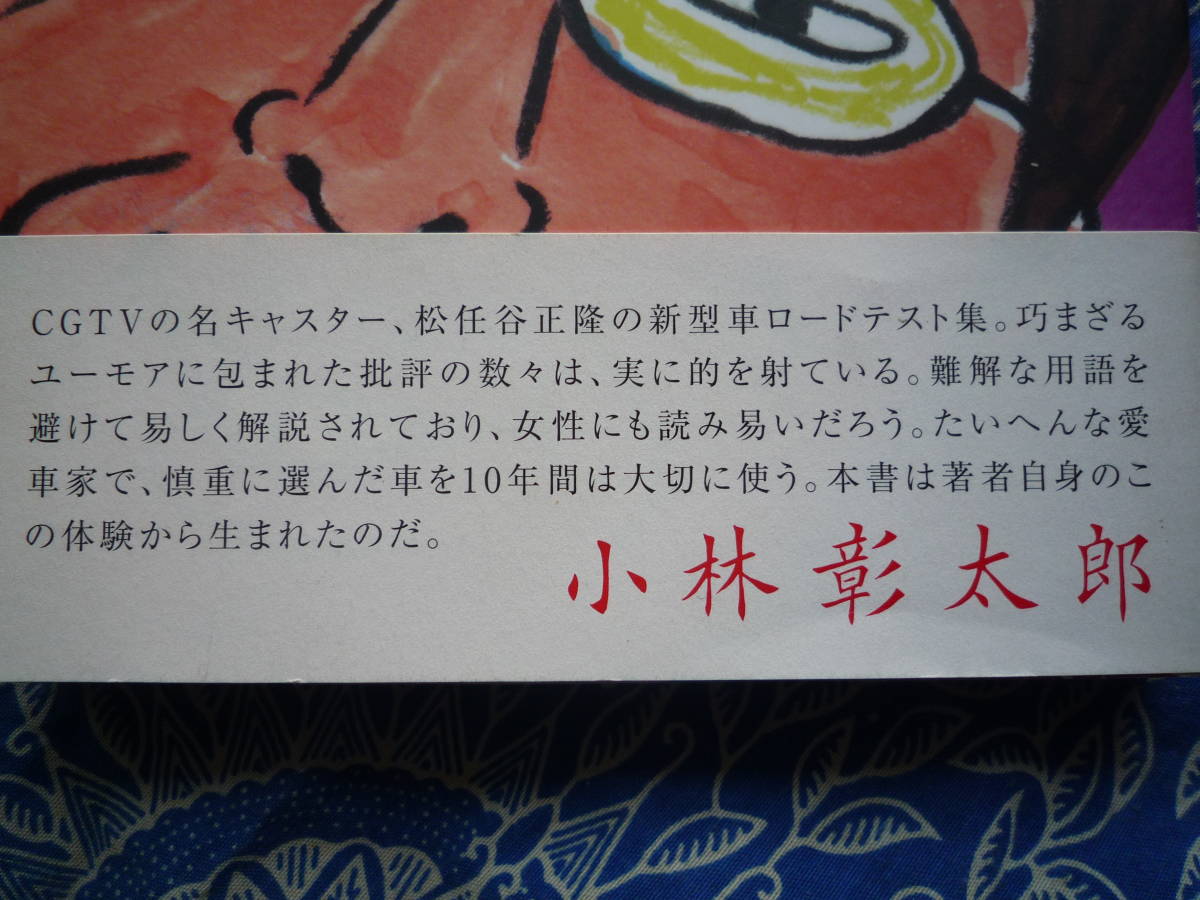 CGTVの名キャスター、松任谷正隆の新型車ロードテスト集。巧まざる
ユーモアに包まれた批評の数々は、実に的を射ている。難解な用語を
避けて易しく解説されており、女性にも読み易いだろう。たいへんな愛
車家で、慎重に選んだ車を10年間は大切に使う。本書は著者自身のこ
の体験から生まれたのだ。
小林彰太郎